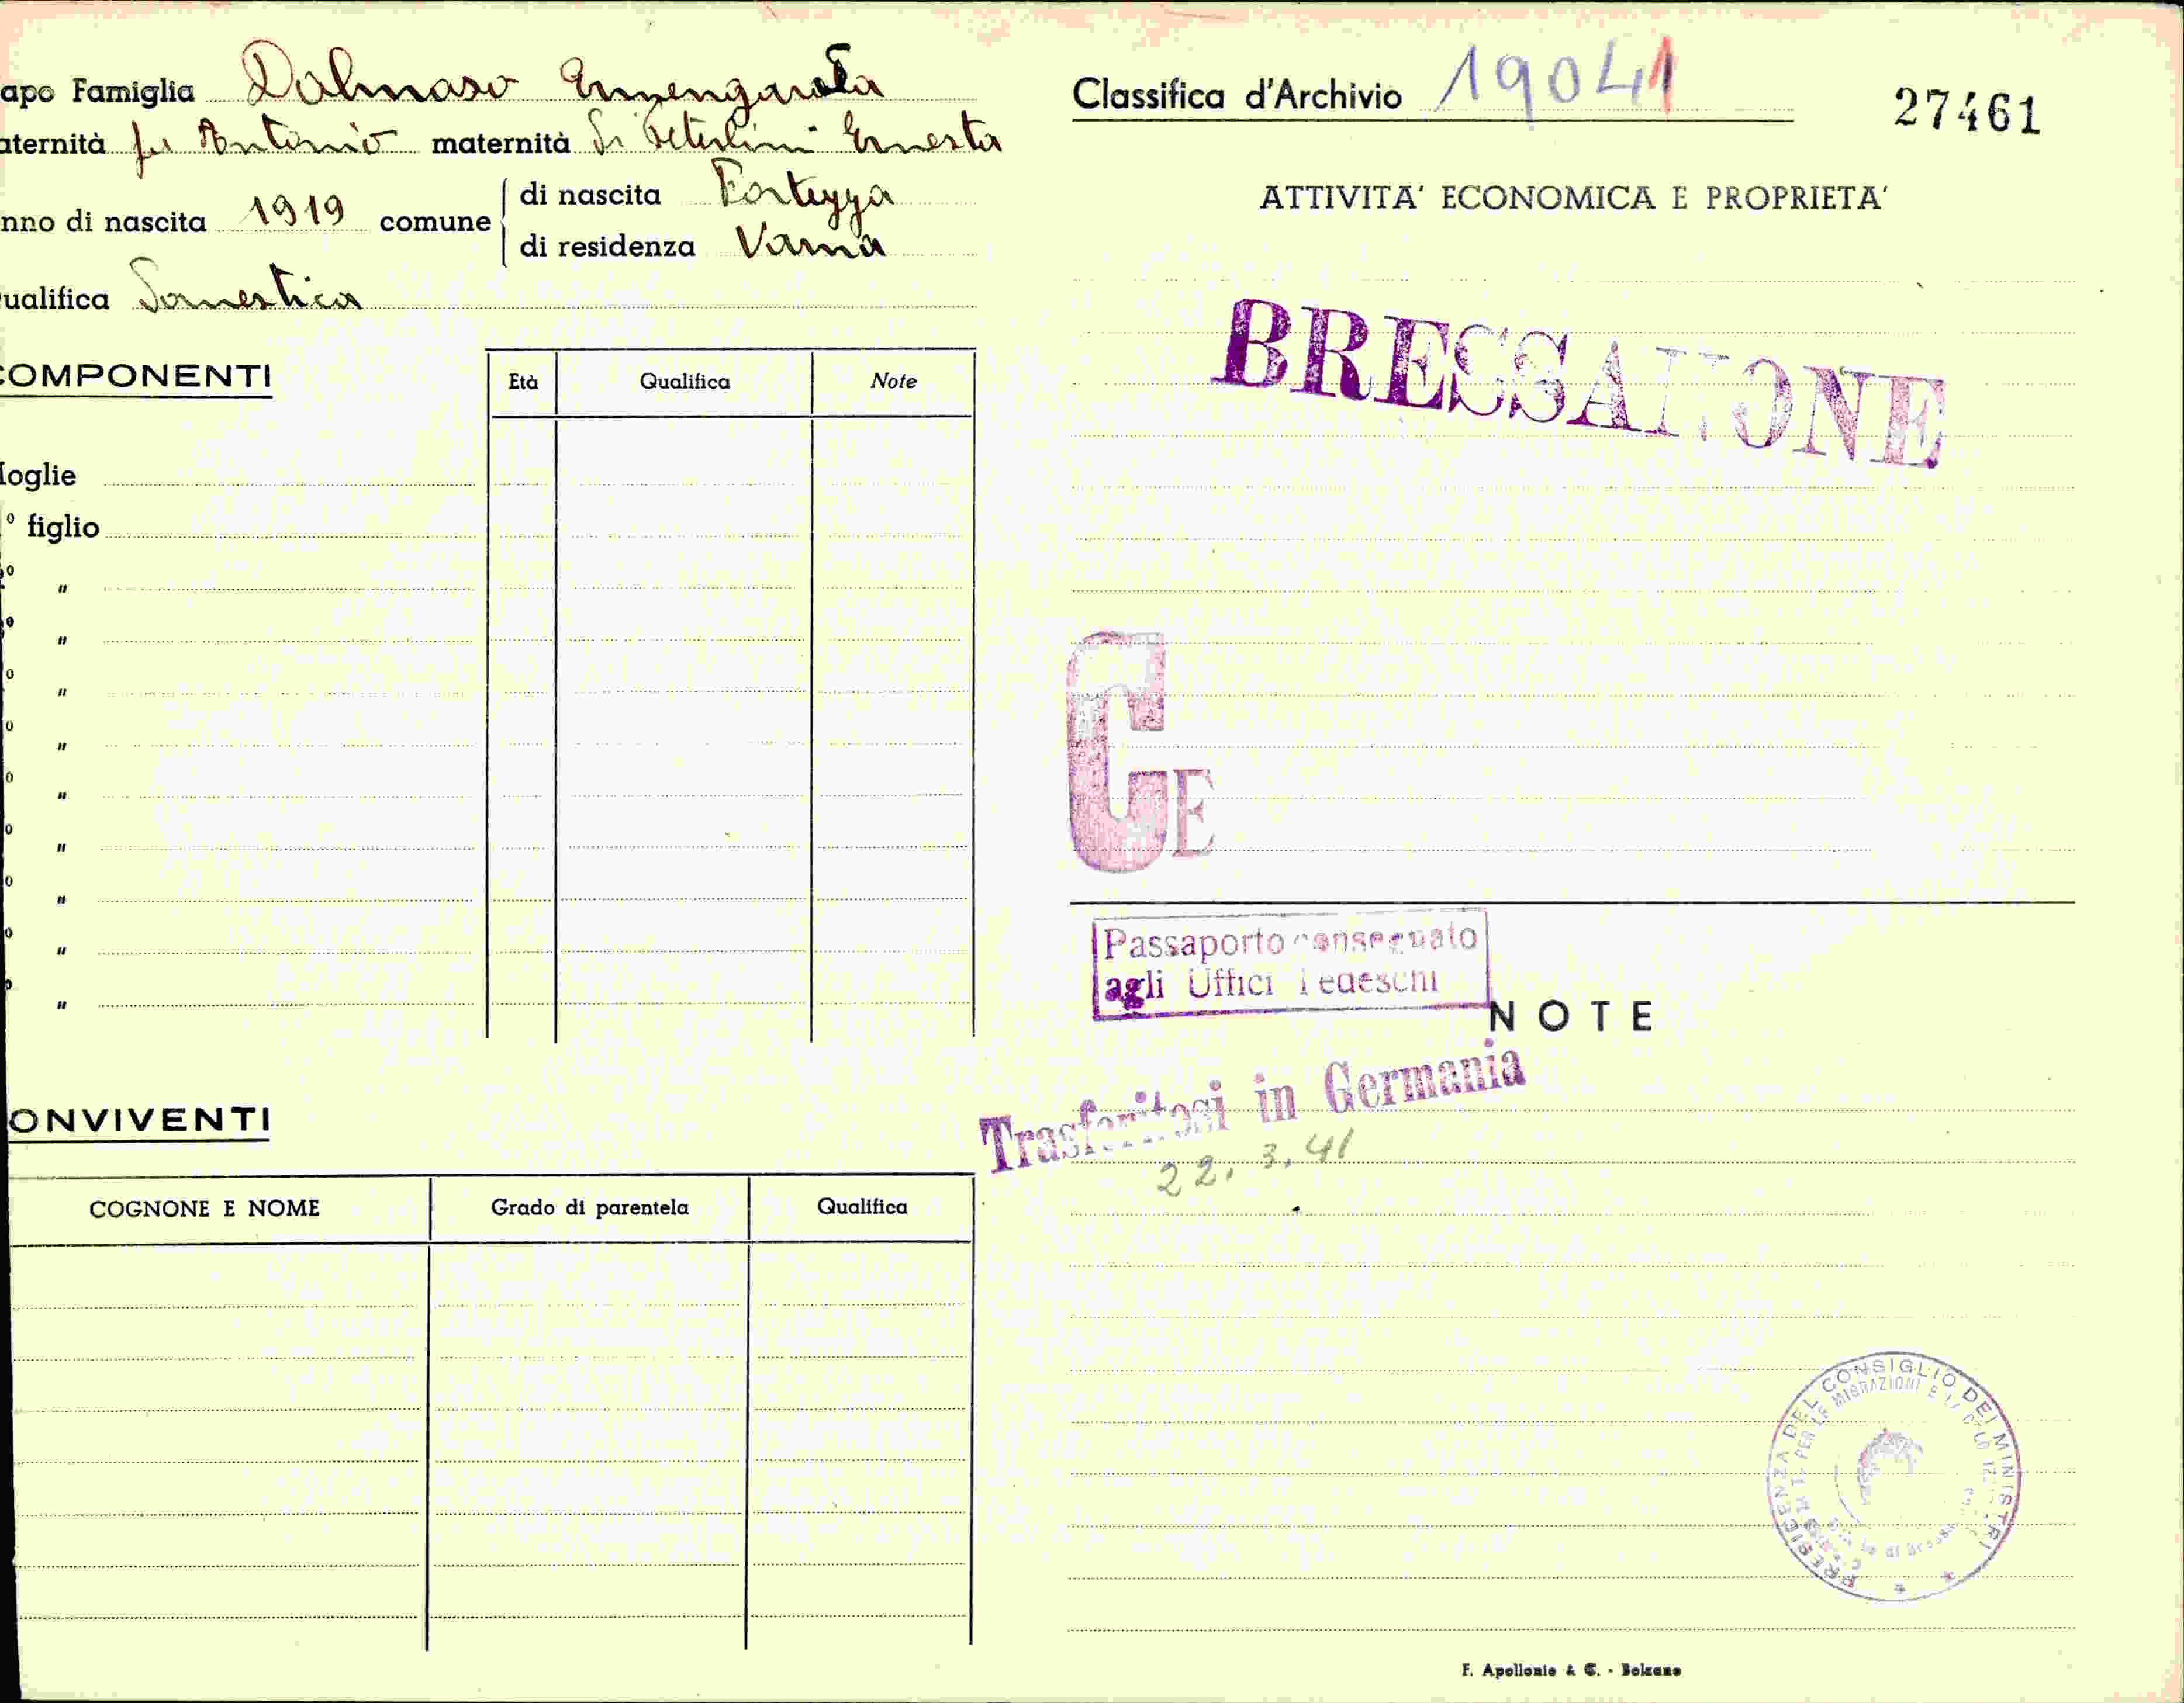 apo Famiglia Dalmaso Ermengarda
aternità fu Antonio maternità di Peterlini Ernesta
nno di nascita 1919 comune di nascita Fortezza
di residenza Varna
ualifica Domestica
OMPONENTI
Età Qualifica Note
oglie
º figlio
º "
º "
º "
º "
º "
º "
º "
º "
º "
ONVIVENTI
COGNONE E NOME Grado di parentela Qualifica
Classifica d'Archivio 19041
27461
ATTIVITA' ECONOMICA E PROPRIETA'
BRESSANONE
CE
Passaporto consegnato
agli Uffici Tedeschi
NOTE
Trasferitosi in Germania
22.3.41
PRESIDENZA DEL CONSIGLIO DEI MINISTRI
PER LE MIGRAZIONI E
F. Apollonio & C. - Bolzano